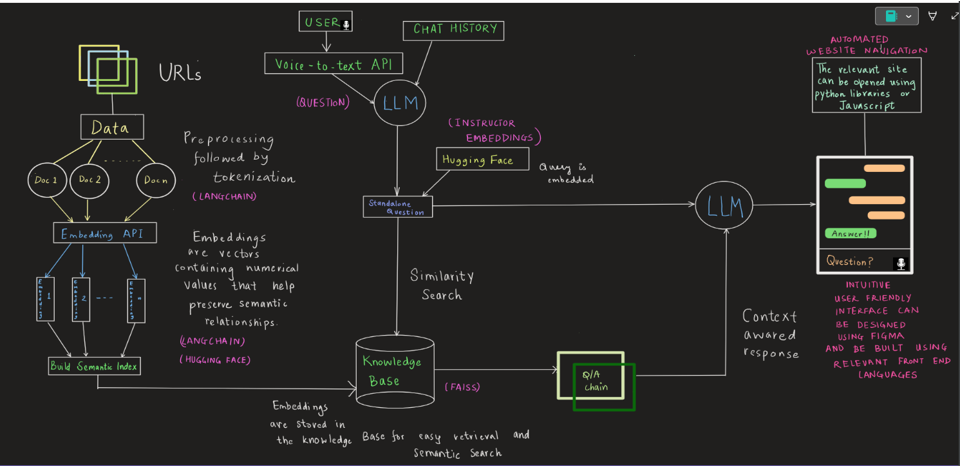 URLs
Data
Doc 1
Doc 2
Doc n
Preprocessing
followed by
tokenization
(LANGCHAIN)
Embedding API
Embedding 1
Embedding 2
Embedding n
Embeddings
are vectors
containing numerical
values that help
preserve semantic
relationships.
(LANGCHAIN)
(HUGGING FACE)
Build Semantic Index
USER
CHAT HISTORY
Voice-to-text API
(QUESTION)
LLM
(INSTRUCTOR
EMBEDDINGS)
Hugging Face
Query is
embedded
Standalone
Question
Similarity
Search
Knowledge
Base
(FAISS)
Embeddings
are stored in
the knowledge Base for easy retrieval and
semantic search
Q/A
chain
LLM
Context
awared
response
AUTOMATED
WEBSITE NAVIGATION
The relevant site
can be opened using
python libraries or
Javascript
Answer!!
Question?
INTUITIVE
USER FRIENDLY
INTERFACE CAN
BE DESIGNED
USING FIGMA
AND BE BUILT USING
RELEVANT FRONT END
LANGUAGES